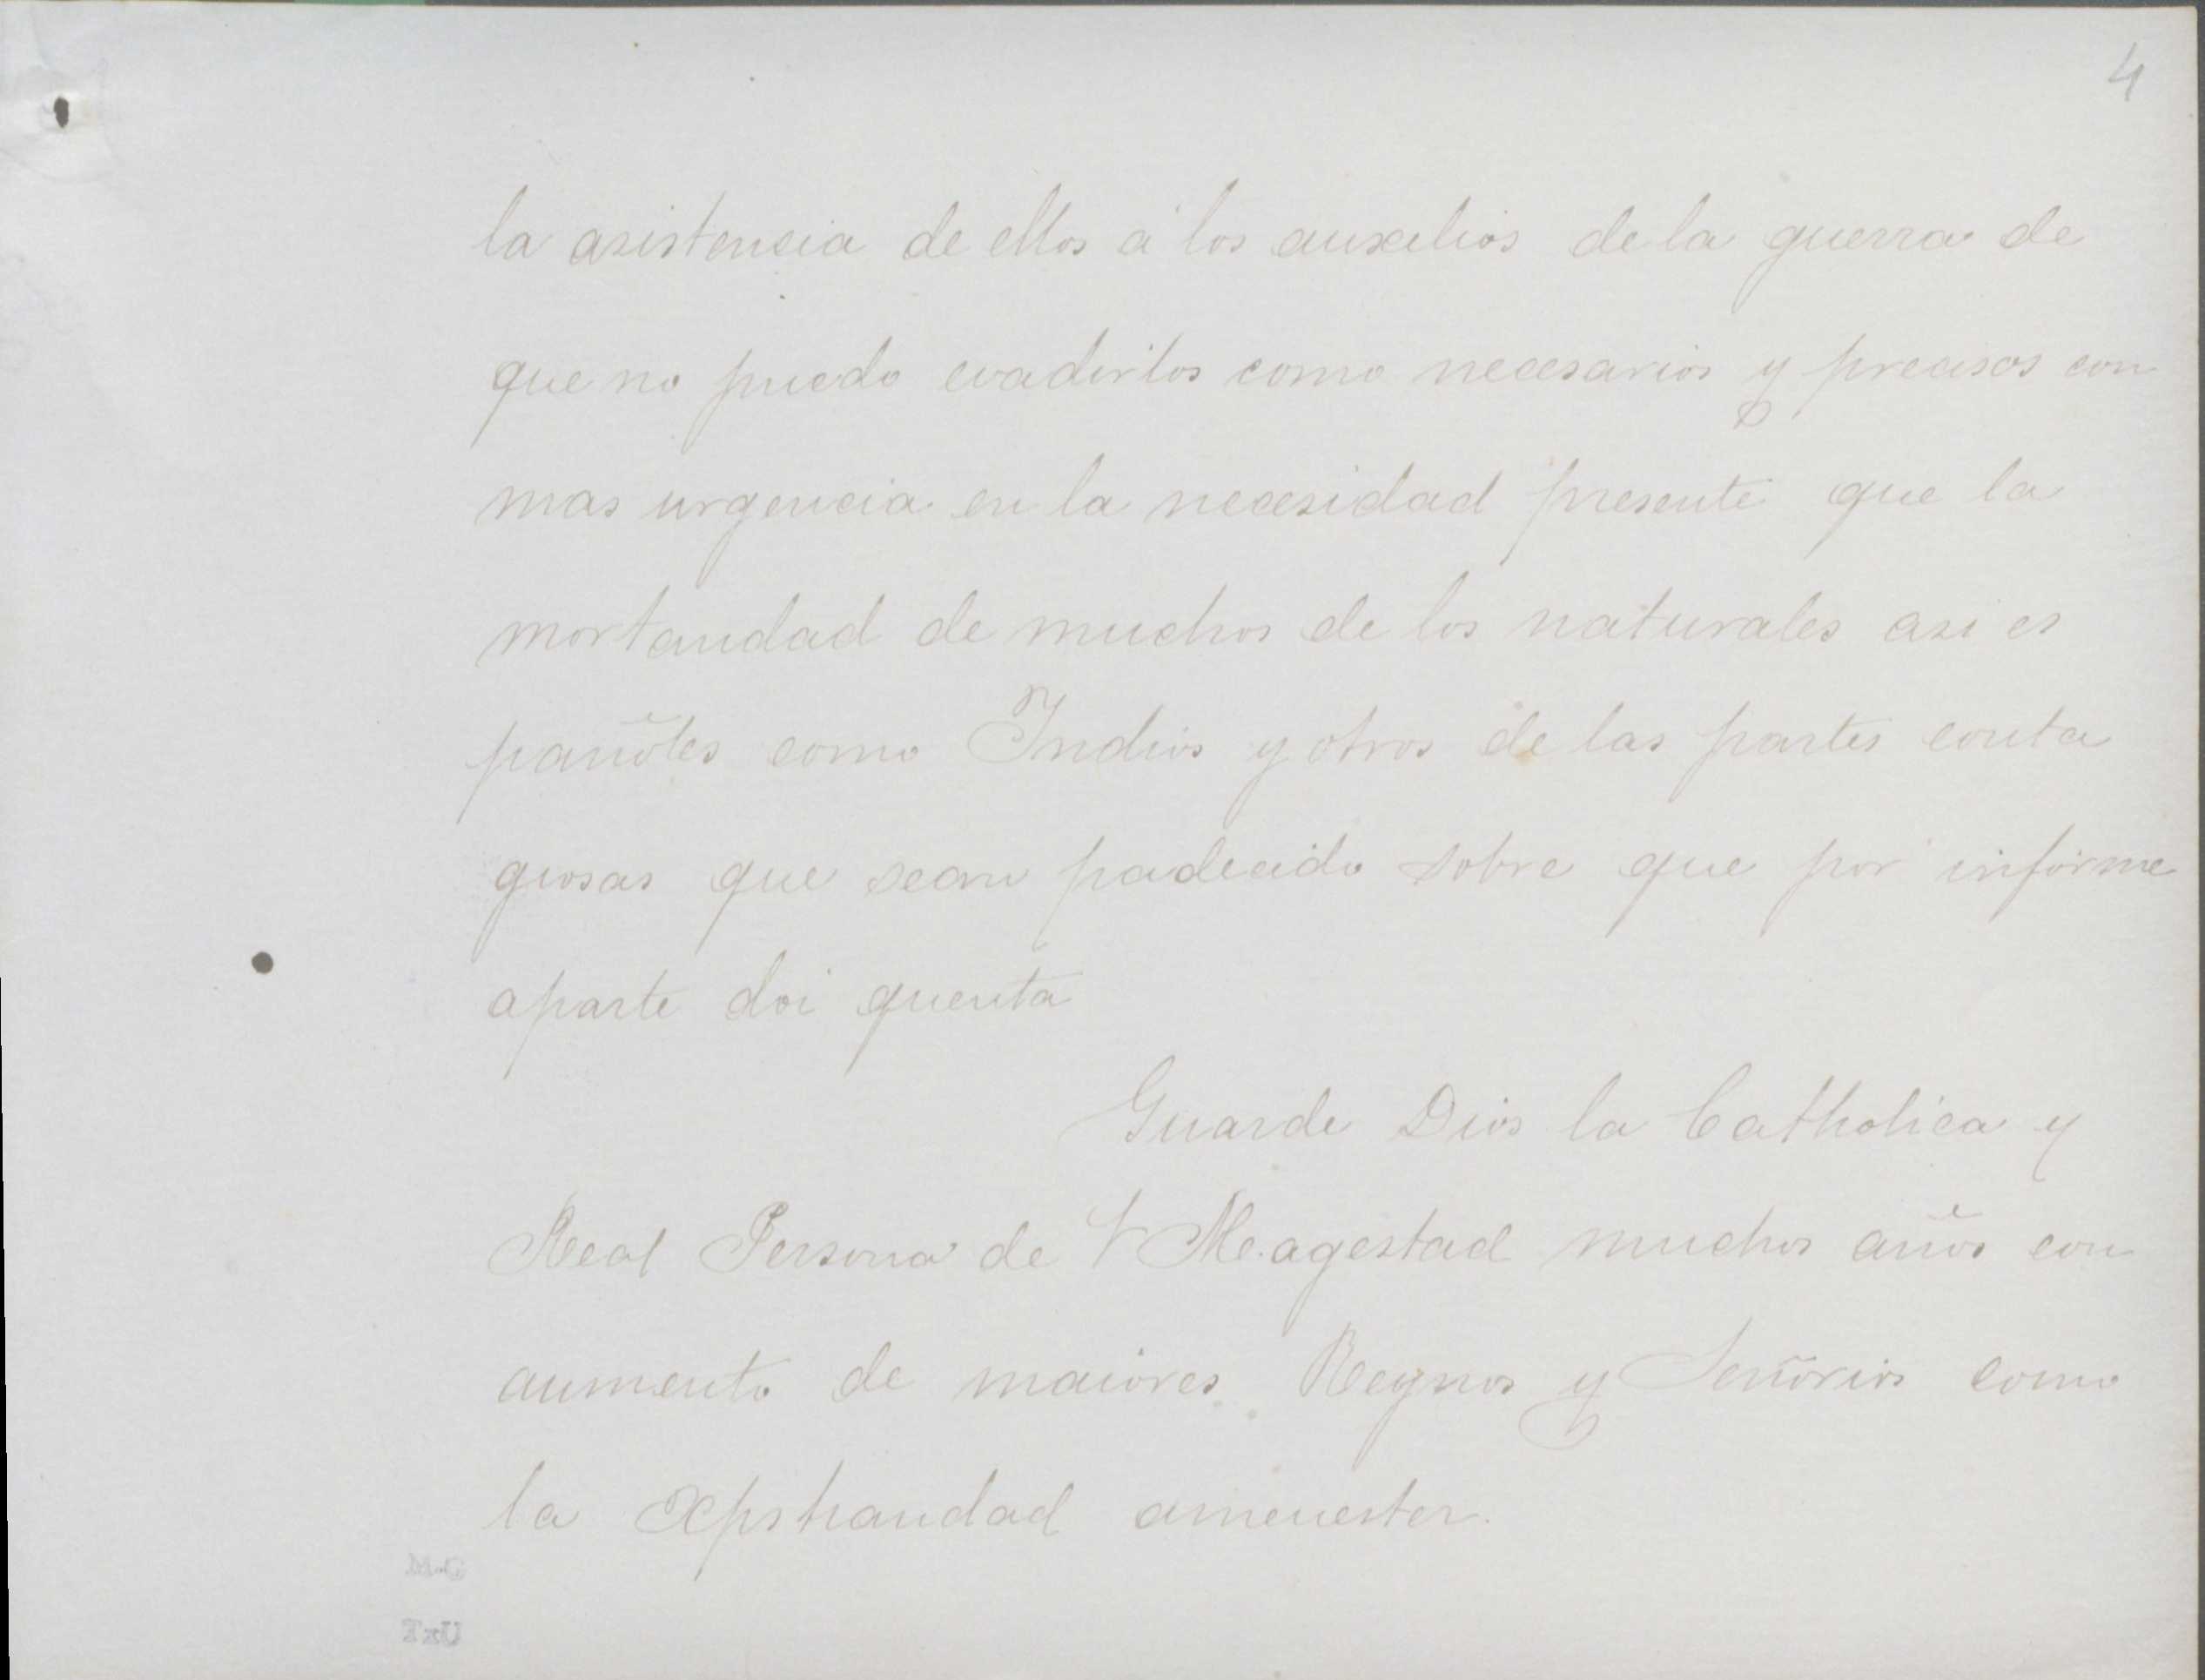 4
la asistencia de ellos á los auxelios de la guerra de
que no puedo evadirlos como necesarios y precisos con
mas urgencia en la necesidad presente que la
mortandad de muchos de los naturales asi es
pañoles como Indios y otros de las partes conta
giosas que sean padecido sobre que por informe
aparte doi quenta
Guarde Dios la Catholica y
Real Persona de V Magestad muchos años con
aumento de maiores Reynos y Señorios como
la Xpstiandad amenester.
TxU